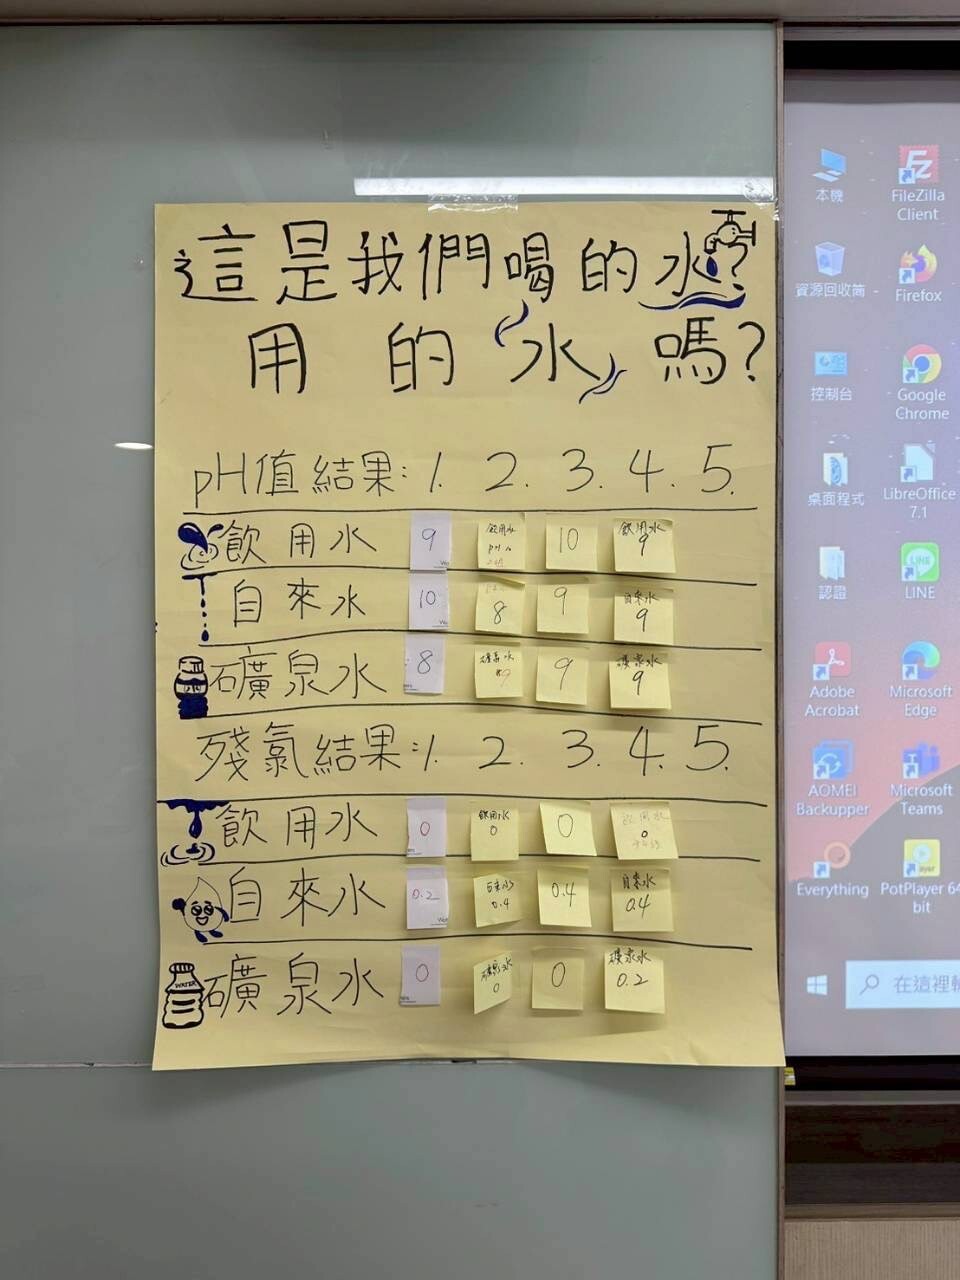 這是我們喝的水?
用的水嗎?
pH值結果:1. 2. 3. 4. 5.
飲用水 9 飲用水 pH 10 飲用水 9
自來水 10 8 9 自來水 9
礦泉水 8 9 9
殘氯結果:1. 2. 3. 4. 5.
飲用水 0 飲用水 0 0 飲用水 0
自來水 0.2 自來水 0.4 0.4 自來水 0.4
WATER 礦泉水 0 礦泉水 0 0 0.2
本機 FileZilla Client
資源回收筒 Firefox
控制台 Google Chrome
桌面程式 LibreOffice 7.1
認證 LINE
Adobe Acrobat Microsoft Edge
AOMEI Backupper Microsoft Teams
Everything PotPlayer 64 bit
在這裡輸